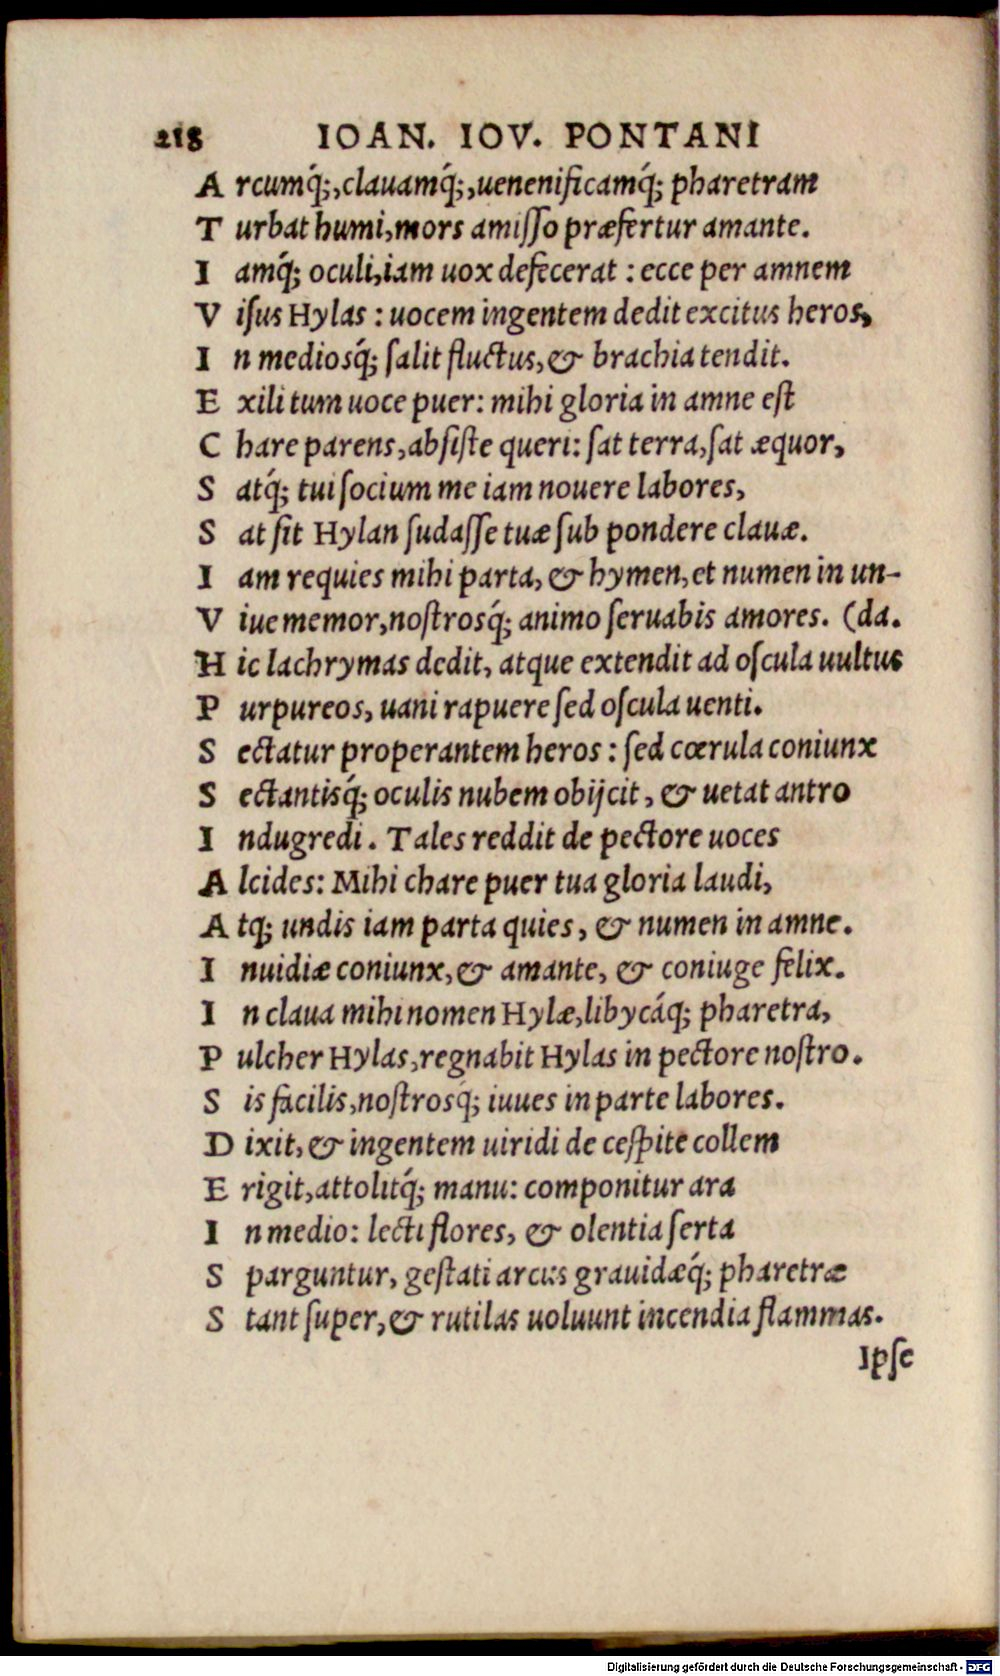 218 IOAN. IOV. PONTANI
A rcumq́;, clauamq́;, uenenificamq́; pharetram
T urbat humi, mors amiſſo præfertur amante.
I amq́; oculi, iam uox defecerat : ecce per amnem
V iſus Hylas : uocem ingentem dedit excitus heros,
I n mediosq́; ſalit fluctus, & brachia tendit.
E xili tum uoce puer: mihi gloria in amne eſt
C hare parens, abſiſte queri: ſat terra, ſat æquor,
S atq́; tui ſocium me iam nouere labores,
S at ſit Hylan ſudaſſe tuæ ſub pondere clauæ.
I am requies mihi parta, & hymen, et numen in un-
V iue memor, noſtrosq́; animo ſeruabis amores. (da.
H ic lachrymas dedit, atque extendit ad oſcula uultus
P urpureos, uani rapuere ſed oſcula uenti.
S ectatur properantem heros : ſed cœrula coniunx
S ectantisq́; oculis nubem obijcit, & uetat antro
I ndugredi. Tales reddit de pectore uoces
A lcides: Mihi chare puer tua gloria laudi,
A tq; undis iam parta quies, & numen in amne.
I nuidiæ coniunx, & amante, & coniuge felix.
I n claua mihi nomen Hylæ, libycáq; pharetra,
P ulcher Hylas, regnabit Hylas in pectore noſtro.
S is facilis, noſtrosq́; iuues in parte labores.
D ixit, & ingentem uiridi de ceſpite collem
E rigit, attolitq́; manu: componitur ara
I n medio: lecti flores, & olentia ſerta
S parguntur, geſtati arcus grauidæq́; pharetræ
S tant ſuper, & rutilas uoluunt incendia flammas.
Ipſe
Digitalisierung gefördert durch die Deutsche Forschungsgemeinschaft - DFG